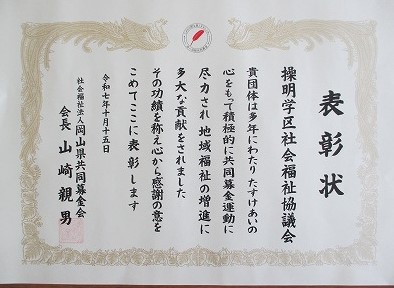 表彰状
操明学区社会福祉協議会
貴団体は多年にわたり たすけあいの
心をもって積極的に共同募金運動に
尽力され 地域福祉の増進に
多大な貢献をされました
その功績を称え心から感謝の意を
こめてここに表彰します
令和七年十月十五日
社会福祉法人 岡山県共同募金会
会長 山崎親男